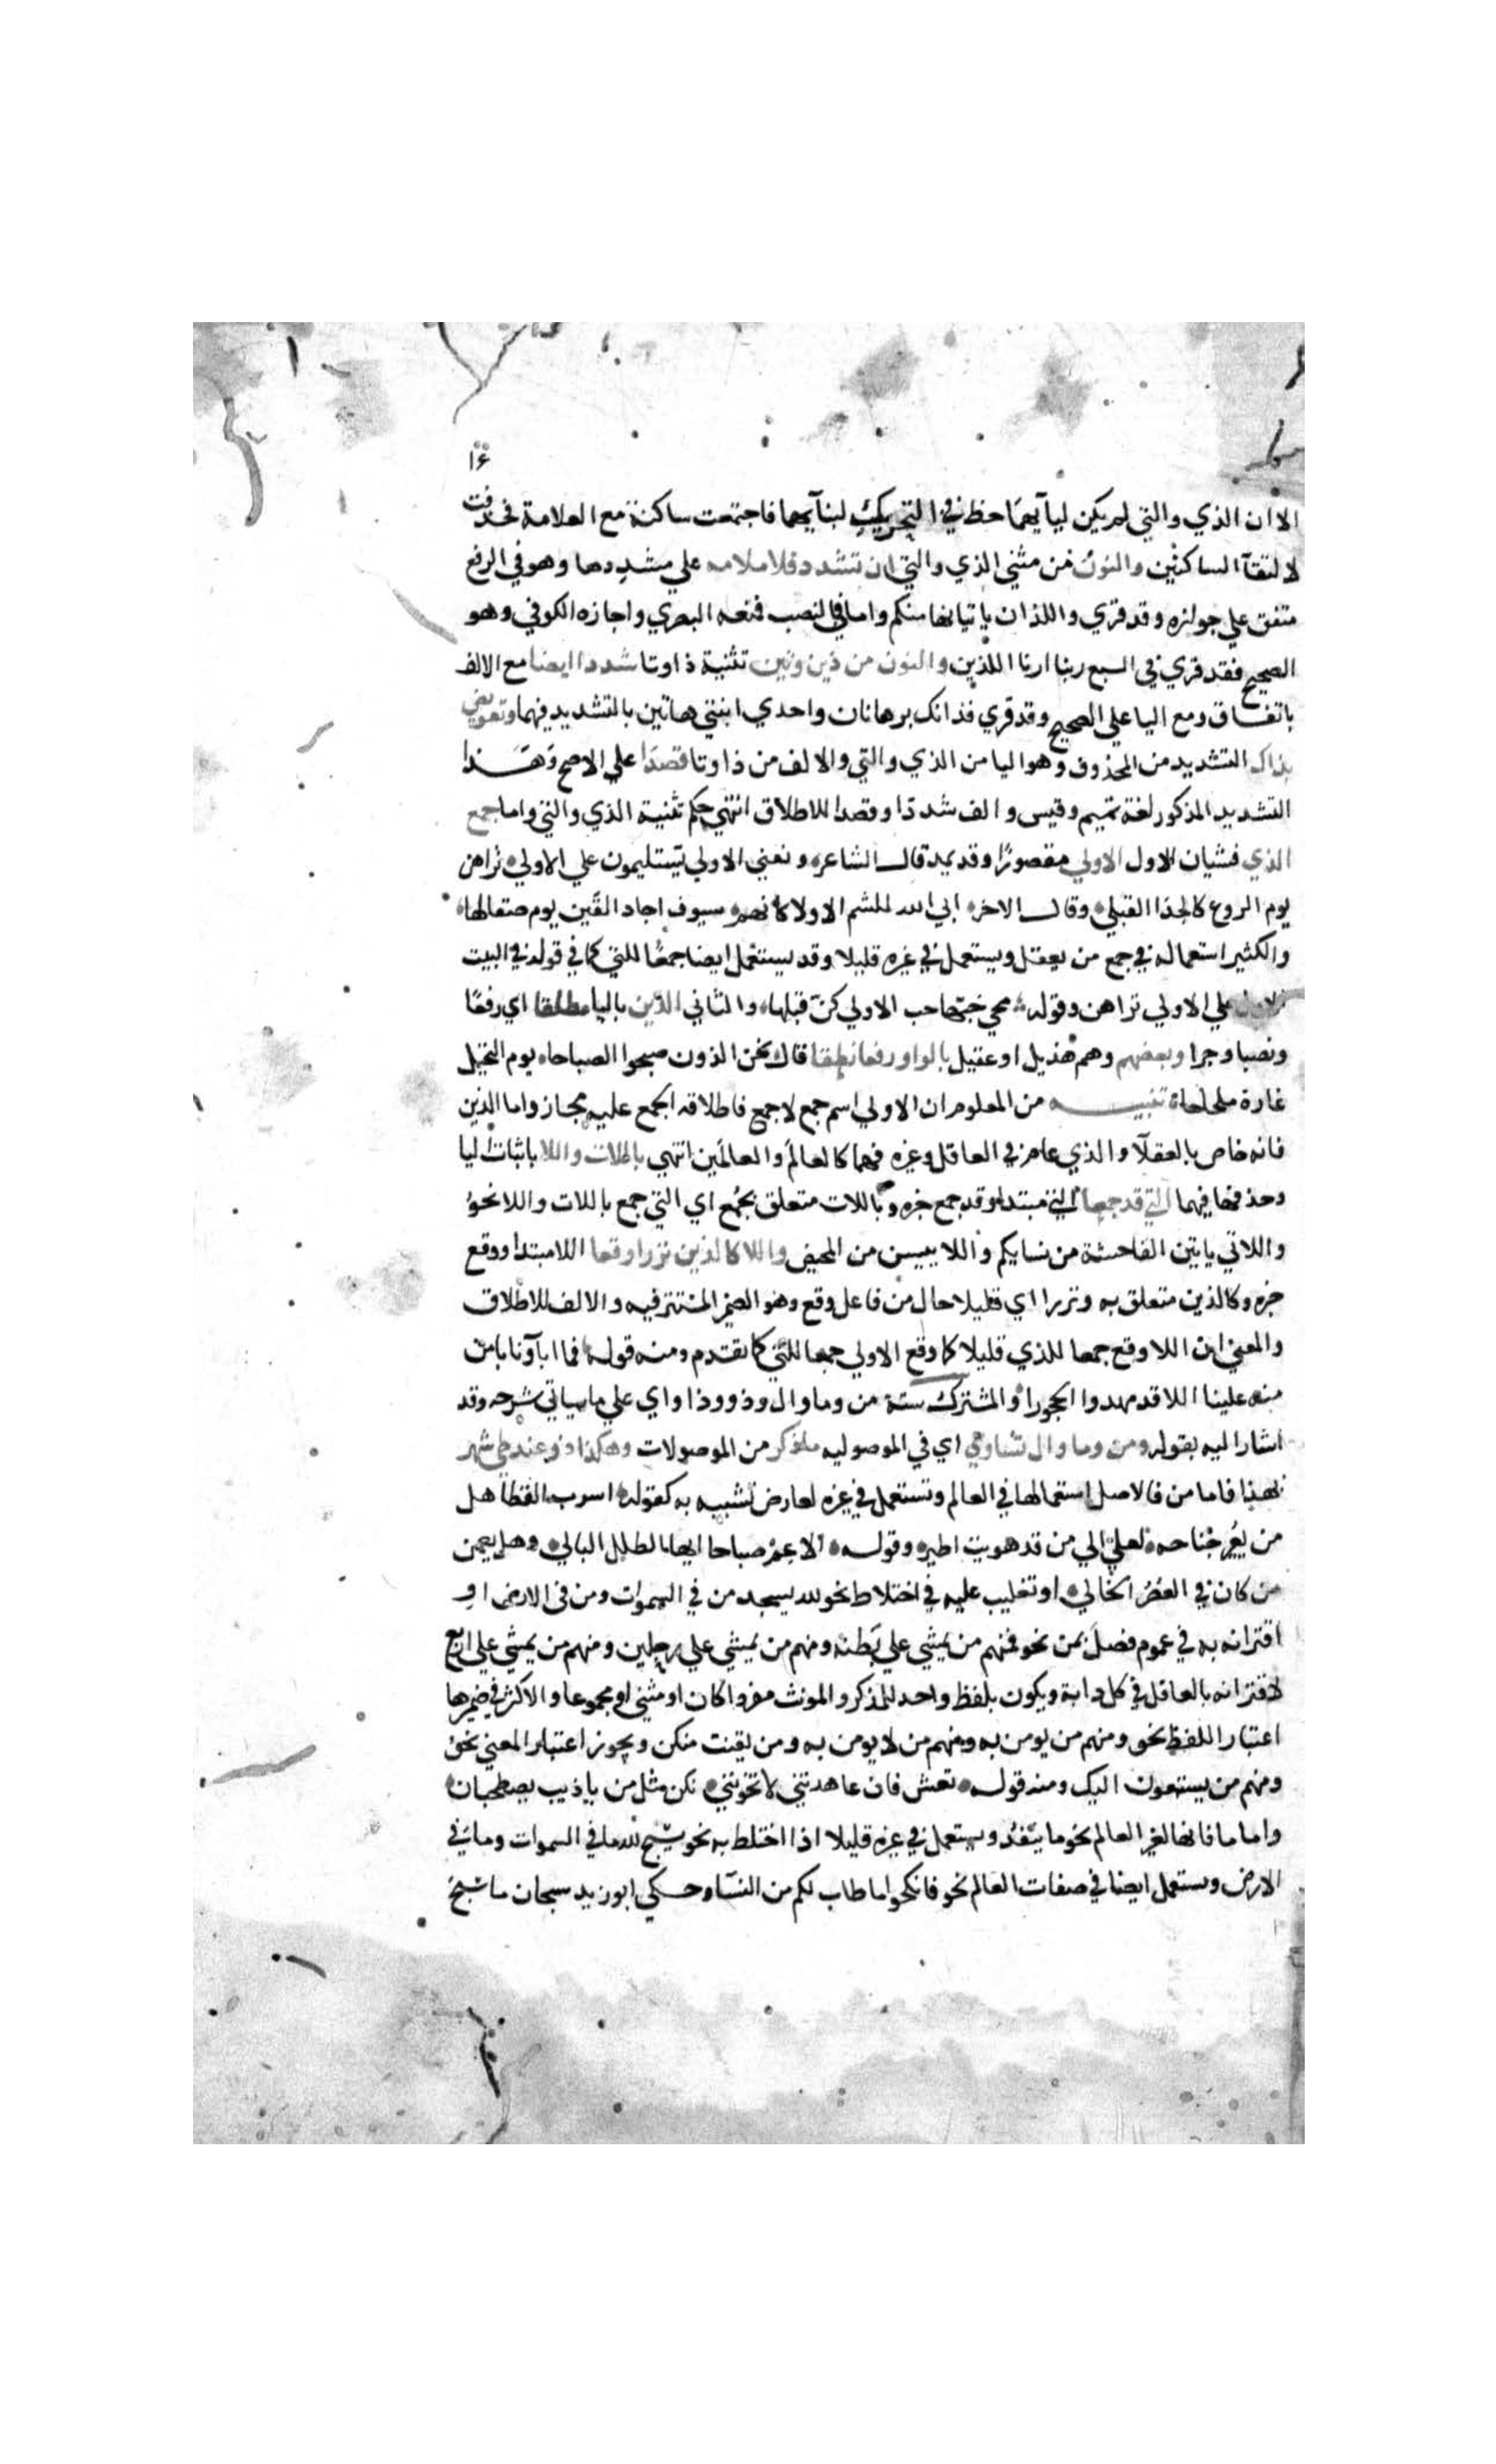 ١٤
الا ان الذي والتي لم يكن ليآيهما حظ في التحريك لبنآيهما فاجتمعت ساكنة مع العلامة فحذفت
لالتقآ الساكنين والنون من مثني الذي والتي ان تشدد فلا ملامه علي مشددها وهو في الرفع
متفق علي جوازه وقد قري واللذان ياتيانها منكم واما في النصب فمنعه البصري واجازه الكوفي وهو
الصحيح فقد قري في السبع ربنا ارنا اللذين والنون من ذين وتين تثنية ذا وتا شددا ايضا مع الالف
باتفاق ومع اليا علي الصحيح وقد قري فذانك برهانان واحدي ابنتي هاتين بالتشديد فيهما وتعويض
بذاك التشديد من المحذوف وهو اليا من الذي والتي والالف من ذا وتا قصدا علي الاصح وهذا
التشديد المذكور لغة تميم وقيس والف شددا وقصدا للاطلاق انتهي حكم تثنية الذي والتي واما جمع
الذي فشيان الاول الاولي مقصورا وقد يمد قال الشاعر ونفني الاولي يستليمون علي الاولي تراهن
يوم الروع كالحدا القبلي وقال الاخر ابي الله للشم الاولا كانهم سيوف اجاد القين يوم صقالها
والكثير استعماله في جمع من يعقل ويستعمل في غيره قليلا وقد يستعمل ايضا جمعا للتي كما في قوله في البيت
الاول علي الاولي تراهن وقوله محي حبها حب الاولي كن قبلها والثاني الذين باليا مطلقا اي رفعا
ونصبا وجرا وبعضهم وهم هذيل او عقيل بالواو رفعا نطقا قال نحن الذون صبحوا الصباحا يوم النخيل
غارة ملحاحا تنبيه من المعلوم ان الاولي اسم جمع لا جمع فاطلاقه الجمع عليه مجاز واما الذين
فانه خاص بالعقلآ والذي عام في العاقل وغيره فهما كالعالم والعالمين انتهي باللات واللا باثبات اليا
وحذفها فيهما التي قد جمعا التي مبتدا وقد جمع خبره وباللات متعلق بجمع اي التي جمع باللات واللا نحو
واللاتي ياتين الفاحشة من نسايكم واللا ييسن من المحيض واللا كالذين نزرا وقعا اللا مبتدا ووقع
خبره وكالذين متعلق به ونزرا اي قليلا حال من فاعل وقع وهو الضمير المستتر فيه والالف للاطلاق
والمعني ان اللا وقع جمعا للذي قليلا كما وقع الاولي جمعا للتي كما تقدم ومنه قوله فما اباونا بامن
منه علينا اللا قد مهدوا الحجورا والمشترك ستة من وما وال وذو وذا واي علي ما سياتي شرحه وقد
اشار اليه بقوله ومن وما وال تساوي اي في الموصوليه ما ذكر من الموصولات وهكذا ذو عند طي شهر
بهذا فاما من فالاصل استعمالها في العالم وتستعمل في غيره لعارض تشبيه به كقوله اسرب القطا هل
من يعير جناحه لعلي الي من قد هويت اطير وقوله الا عم صباحا ايها الطلل البالي وهل يعمن
من كان في العصر الخالي او تغليب عليه في اختلاط نحو لله يسجد من في السموات ومن في الارض او
اقترانه به في عموم فصل بمن نحو فمنهم من يمشي علي بطنه ومنهم من يمشي علي رجلين ومنهم من يمشي علي اربع
لاقترانه بالعاقل في كل دابة ويكون بلفظ واحد للمذكر والمونث مفردا كان او مثني او مجموعا والاكثر في ضميرها
اعتبار اللفظ نحو ومنهم من يومن به ومنهم من لا يومن به ومن يقنت منكن ويجوز اعتبار المعني نحو
ومنهم من يستمعون اليك ومنه قوله تعش فان عاهدتني لا تخونني نكن مثل من ياذيب يصطحبان
واما ما فانها لغير العالم نحو ما ينفد ويستعمل في غيره قليلا اذا اختلط به نحو يسبح لله ما في السموات وما في
الارض ويستعمل ايضا في صفات العالم نحو فانكحوا ما طاب لكم من النسآ وحكي ابو زيد سبحان ما سبح